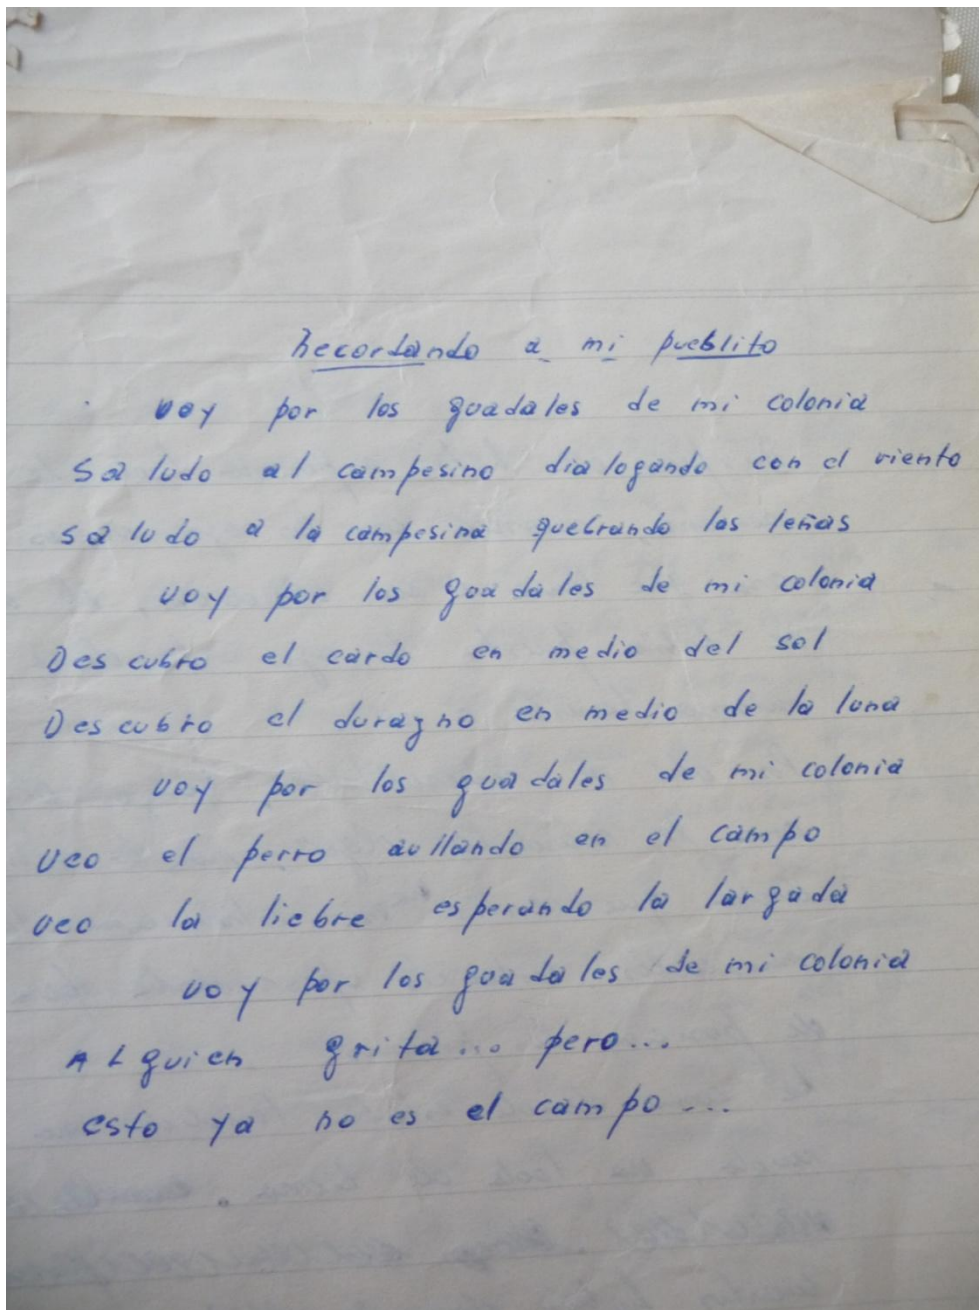 Recordando a mi pueblito
voy por los guadales de mi colonia
Saludo al campesino dialogando con el viento
saludo a la campesina quebrando las leñas
voy por los guadales de mi colonia
Descubro el cardo en medio del sol
Descubro el duragno en medio de la luna
voy por los guadales de mi colonia
veo el perro aullando en el campo
veo la liebre esperando la largada
voy por los guadales de mi colonia
ALguien grita... pero...
esto ya no es el campo...